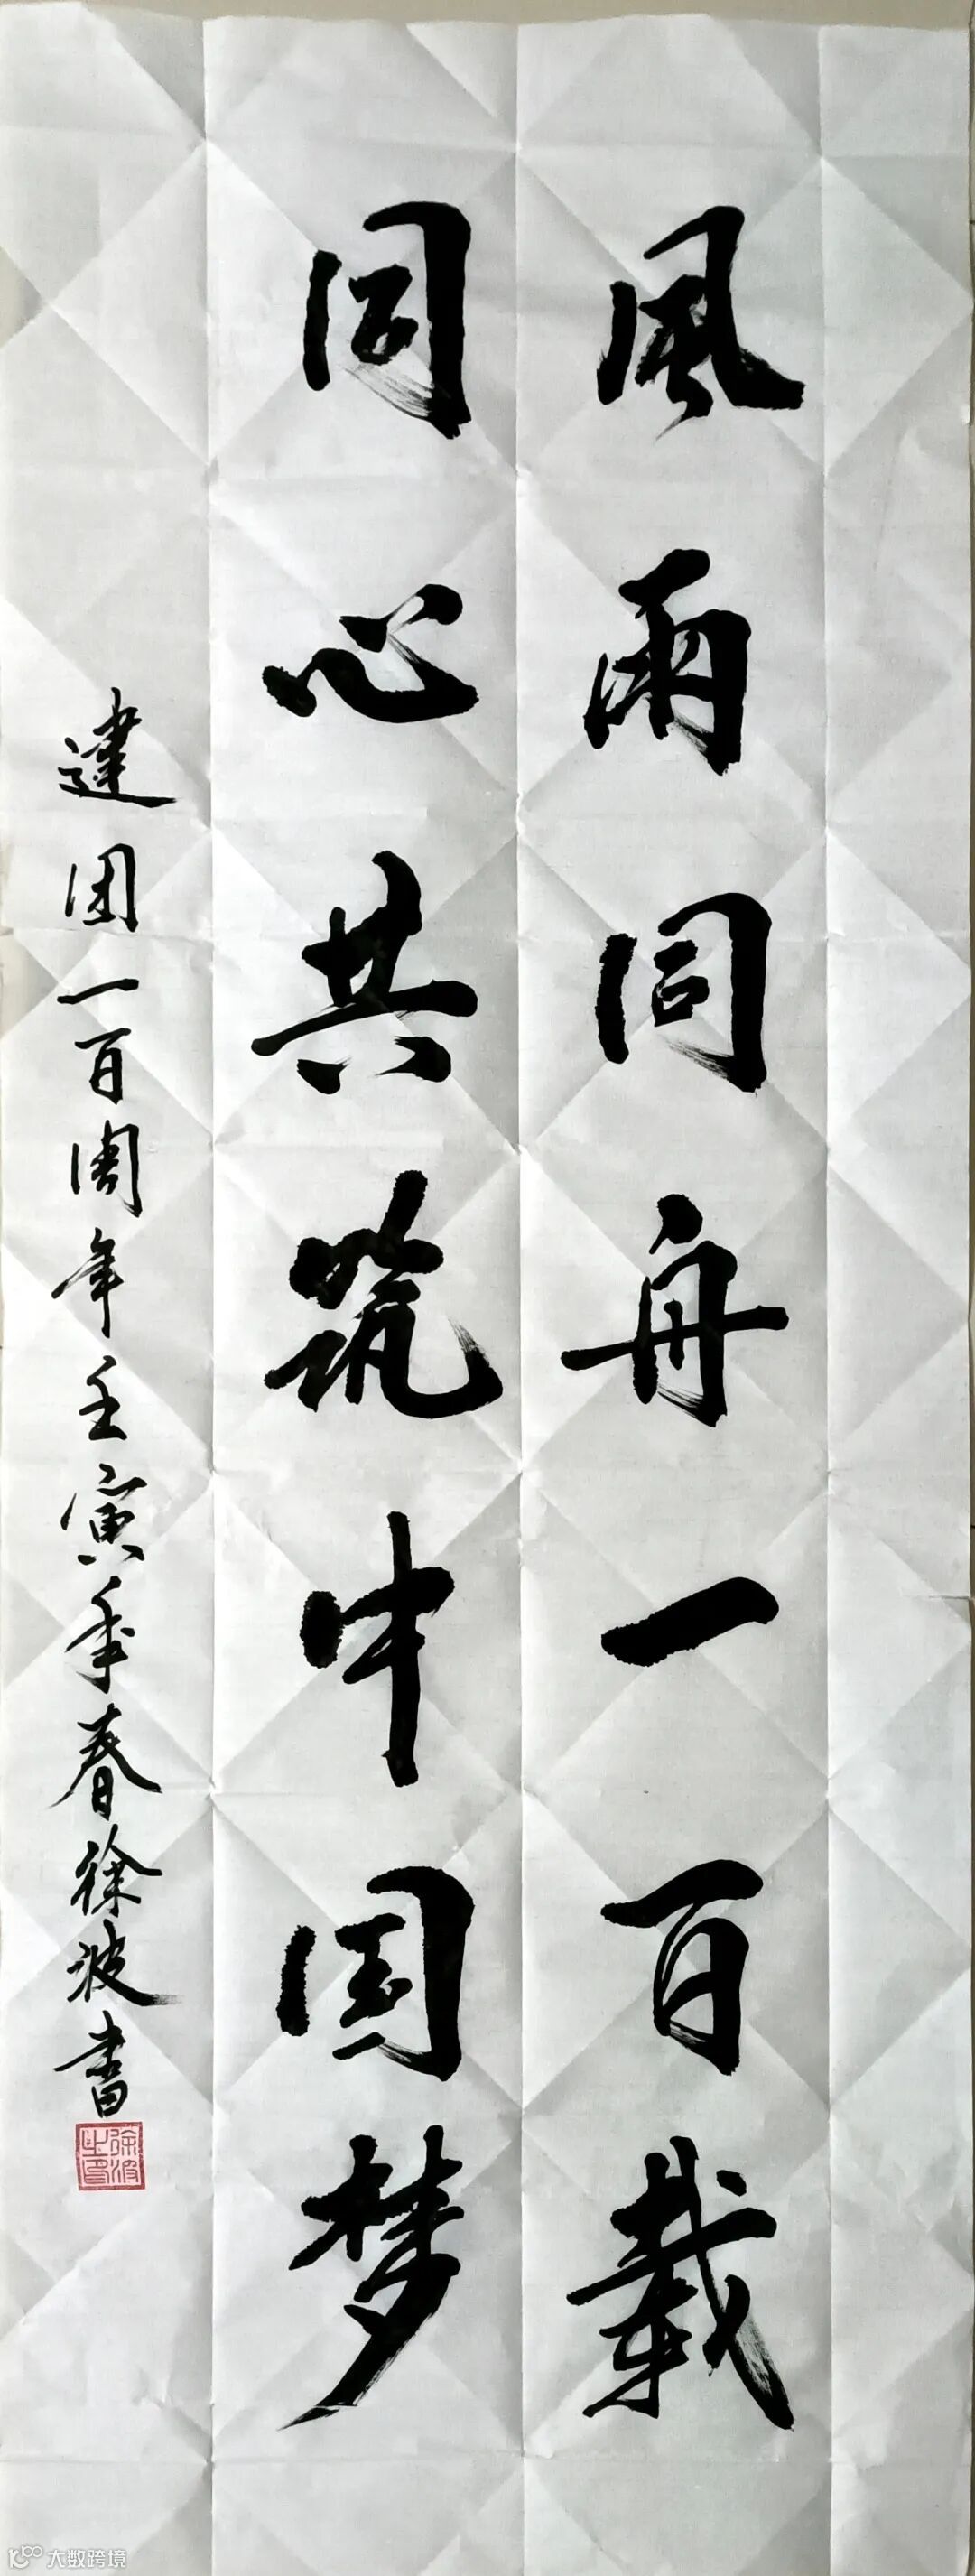 風雨同舟一百載
同心共筑中国梦
建团一百周年壬寅年春徐波書
徐波之印
大数跨境